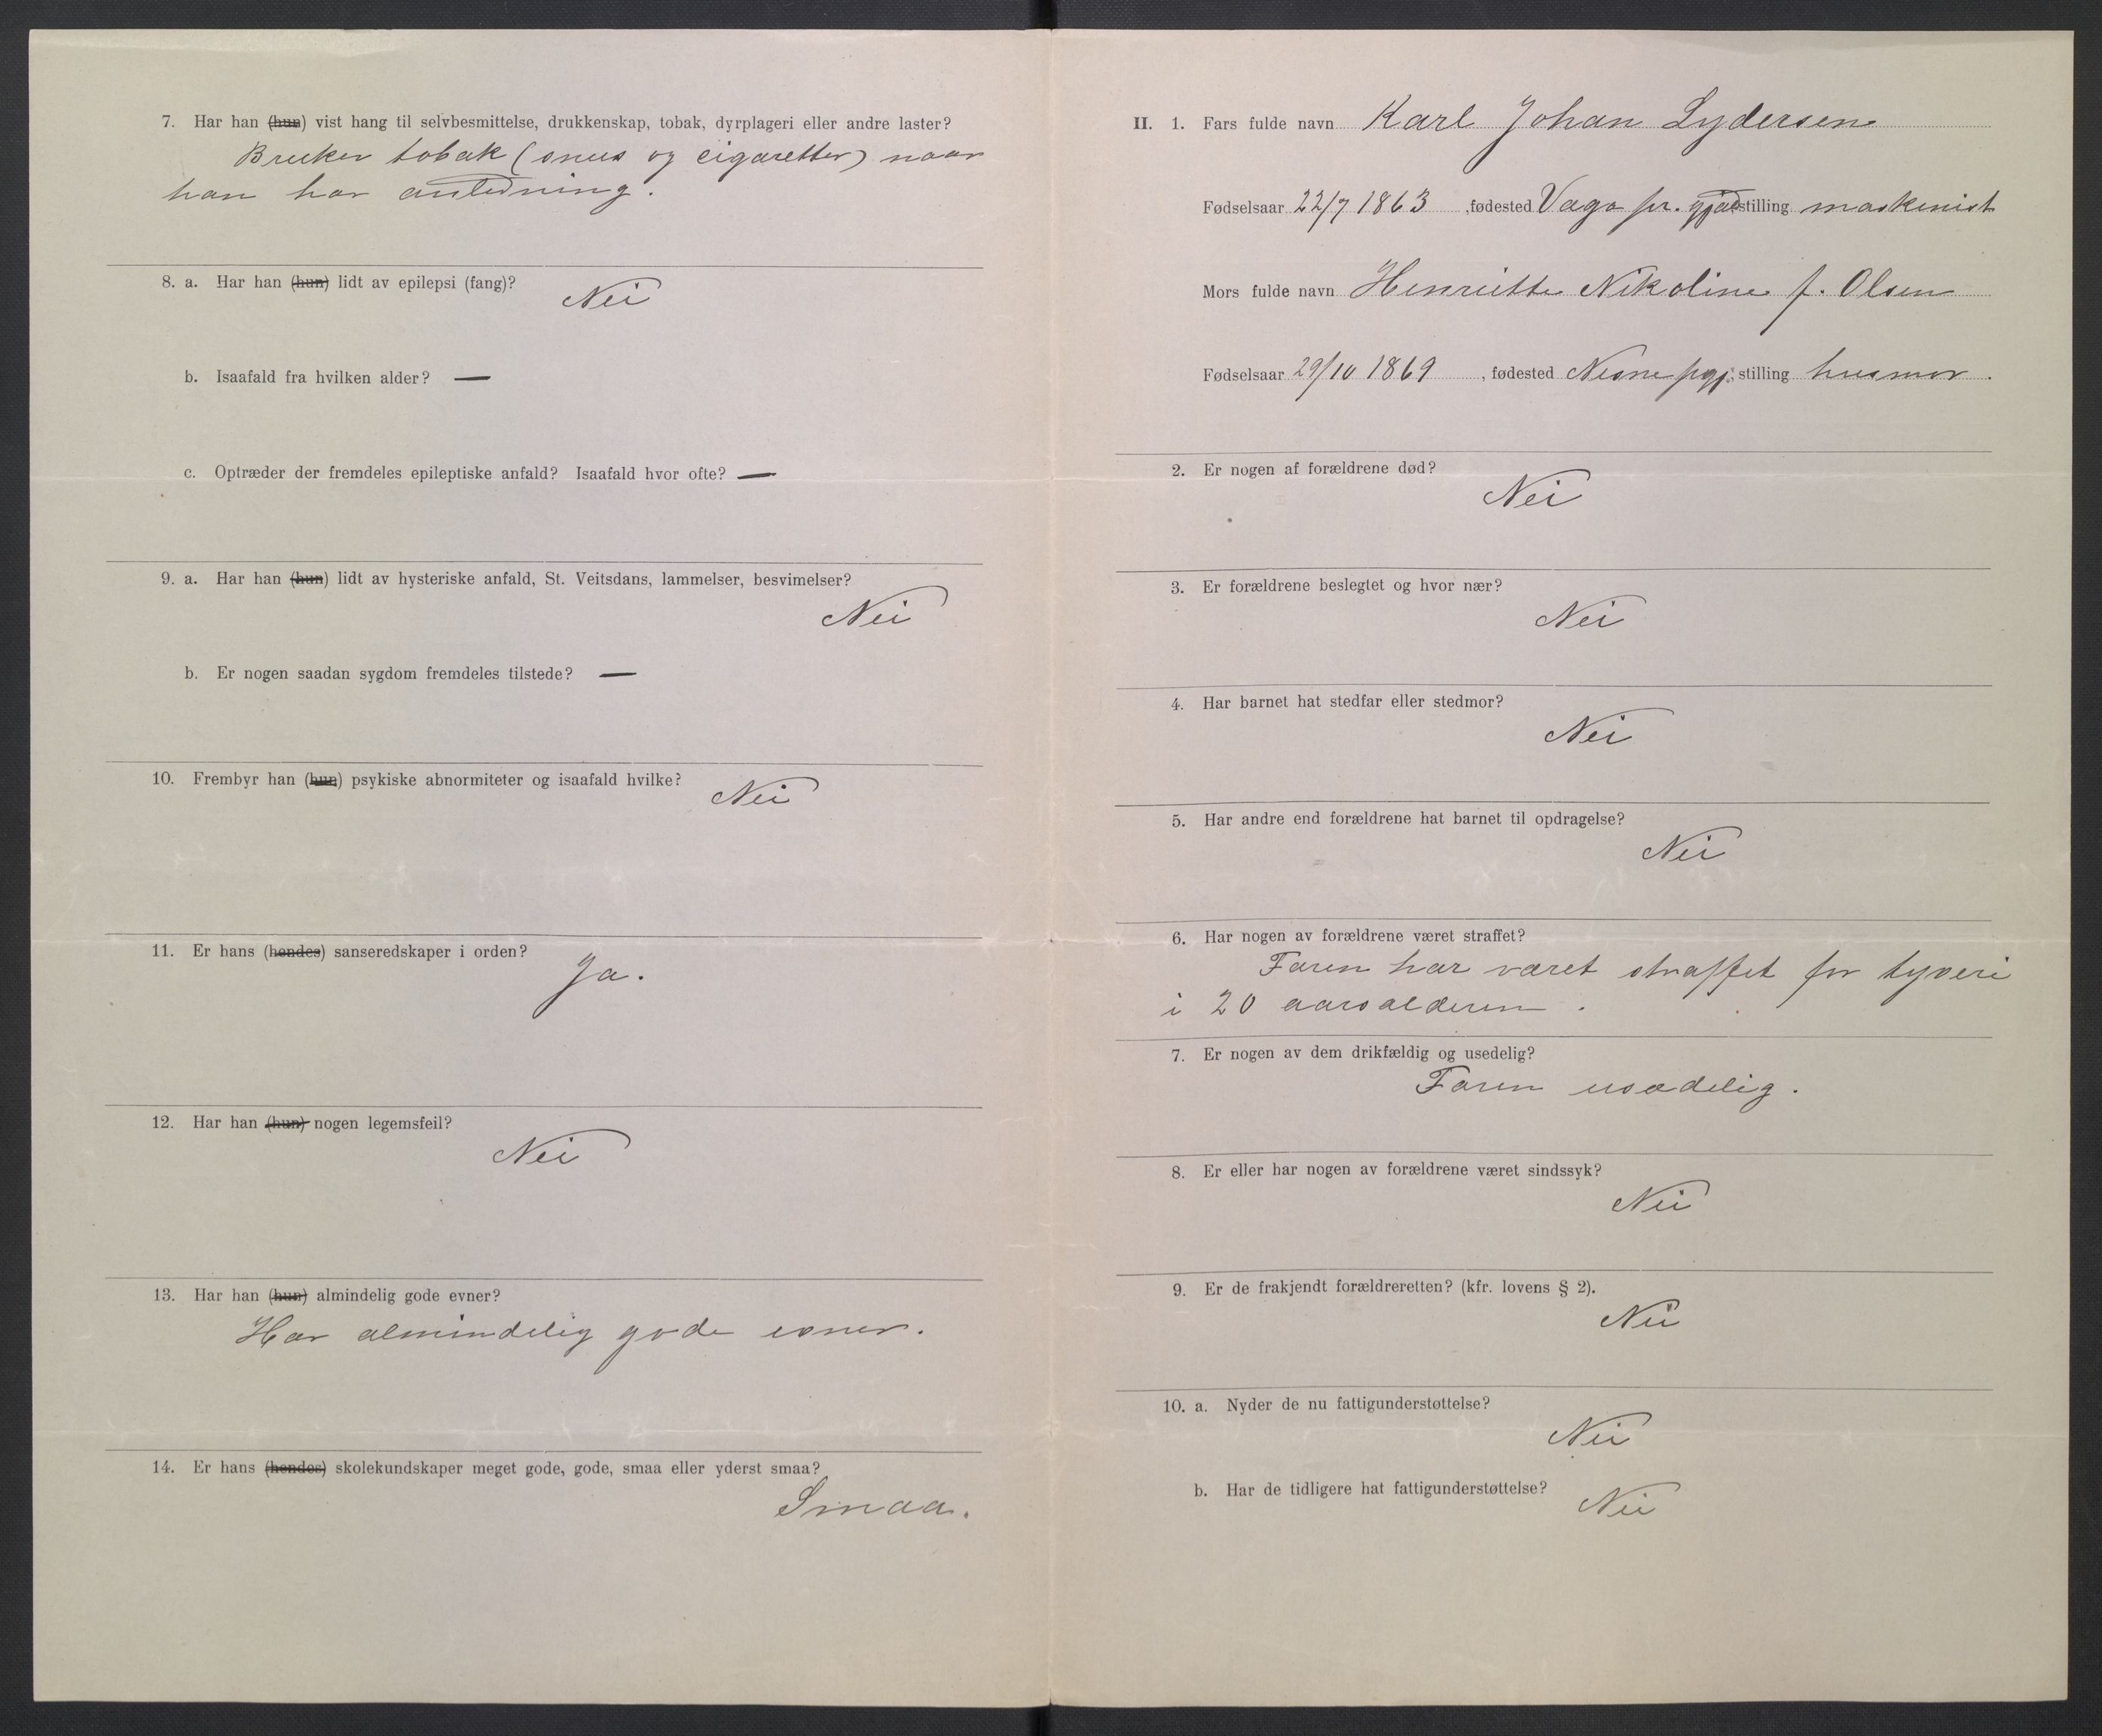 7. Har han (hun) vist hang til selvbesmittelse, drukkenskap, tobak, dyrplageri eller andre laster?
Bruker tobak (snus og cigaretter) naar
han har anledning.
8. a. Har han (hun) lidt av epilepsi (fang)? Nei
b. Isaafald fra hvilken alder? —
c. Optræder der fremdeles epileptiske anfald? Isaafald hvor ofte? —
9. a. Har han (hun) lidt av hysteriske anfald, St. Veitsdans, lammelser, besvimelser?
Nei
b. Er nogen saadan sygdom fremdeles tilstede? —
10. Frembyr han (hun) psykiske abnormiteter og isaafald hvilke? Nei
11. Er hans (hendes) sanseredskaper i orden?
Ja.
12. Har han (hun) nogen legemsfeil?
Nei
13. Har han (hun) almindelig gode evner?
Har almindelig gode evner.
14. Er hans (hendes) skolekundskaper meget gode, gode, smaa eller yderst smaa?
Smaa.
II. 1. Fars fulde navn Karl Johan Lydersen
Fødselsaar 22/7 1863, fødested Vaga pr. gjæld stilling maskinist
Mors fulde navn Henriette Nikoline f. Olsen
Fødselsaar 29/10 1869, fødested Nesne pgj: stilling husmor.
2. Er nogen af forældrene død?
Nei
3. Er forældrene beslegtet og hvor nær?
Nei
4. Har barnet hat stedfar eller stedmor?
Nei
5. Har andre end forældrene hat barnet til opdragelse?
Nei
6. Har nogen av forældrene været straffet?
Faren har været straffet for tyveri
i 20 aarsalderen.
7. Er nogen av dem drikfældig og usedelig?
Faren usædelig.
8. Er eller har nogen av forældrene været sindssyk?
Nei
9. Er de frakjendt forældreretten? (kfr. lovens § 2).
Nei
10. a. Nyder de nu fattigunderstøttelse?
Nei
b. Har de tidligere hat fattigunderstøttelse? Nei